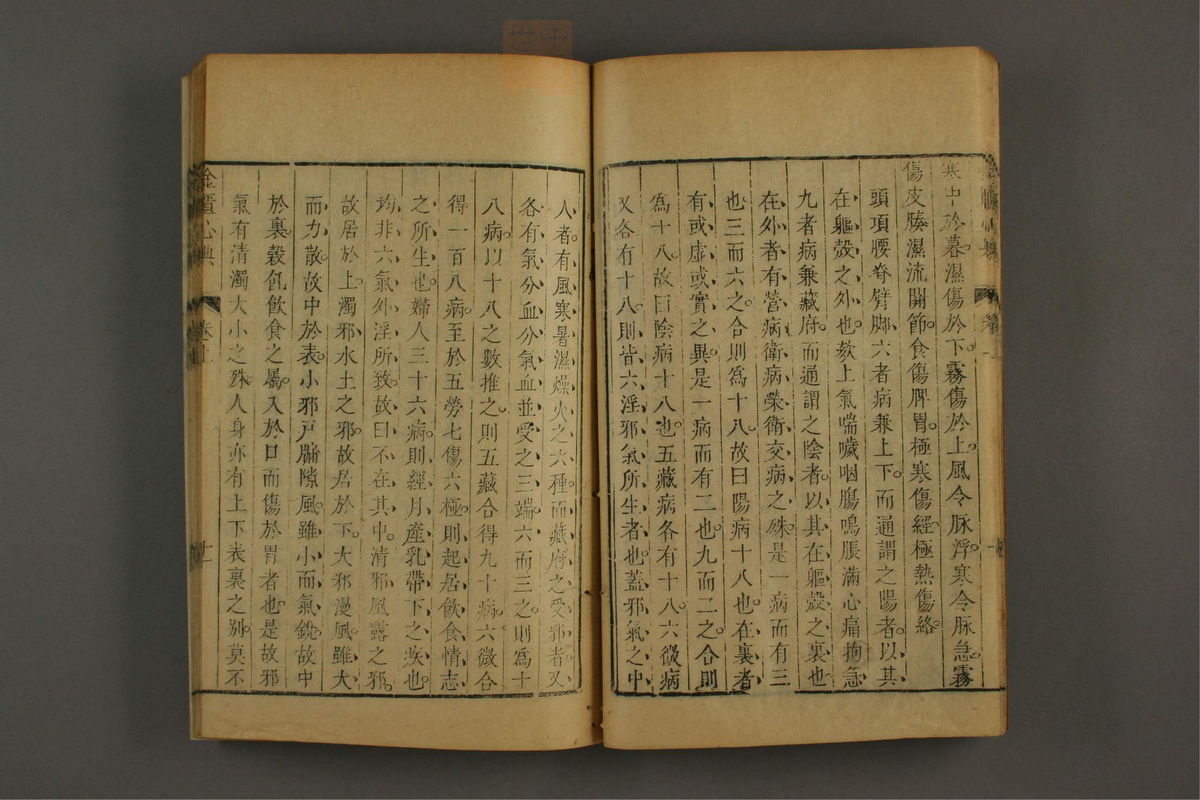 寒中於暮濕傷於下霧傷於上風令脉浮寒令脉急霧
傷皮腠濕流關節食傷脾胃極寒傷經極熱傷絡
頭項腰脊臂脚六者病兼上下而通謂之陽者以其
在軀殼之外也欬上氣喘噦咽腸鳴脹滿心痛拘急
九者病兼藏府而通謂之陰者以其在軀殼之裏也
在外者有營病衛病榮衛交病之殊是一病而有三
也三而六之合則爲十八故曰陽病十八也在裏者
有或虛或實之異是一病而有二也九而二之合則
爲十八故曰陰病十八也五藏病各有十八六微病
又各有十八則皆六淫邪氣所生者也蓋邪氣之中
人者有風寒暑濕燥火之六種而藏府之受邪者又
各有氣分血分氣血並受之三端六而三之則爲十
八病以十八之數推之則五藏合得九十病六微合
得一百八病至於五勞七傷六極則起居飲食情志
之所生也婦人三十六病則經月產乳帶下之疾也
均非六氣外淫所致故曰不在其中清邪風露之邪
故居於上濁邪水土之邪故居於下大邪漫風雖大
而力散故中於表小邪戸牖隙風雖小而氣銳故中
於裏穀飥飲食之屬入於口而傷於胃者也是故邪
氣有清濁大小之殊人身亦有上下表裏之別莫不
金匱心典
卷上
十一